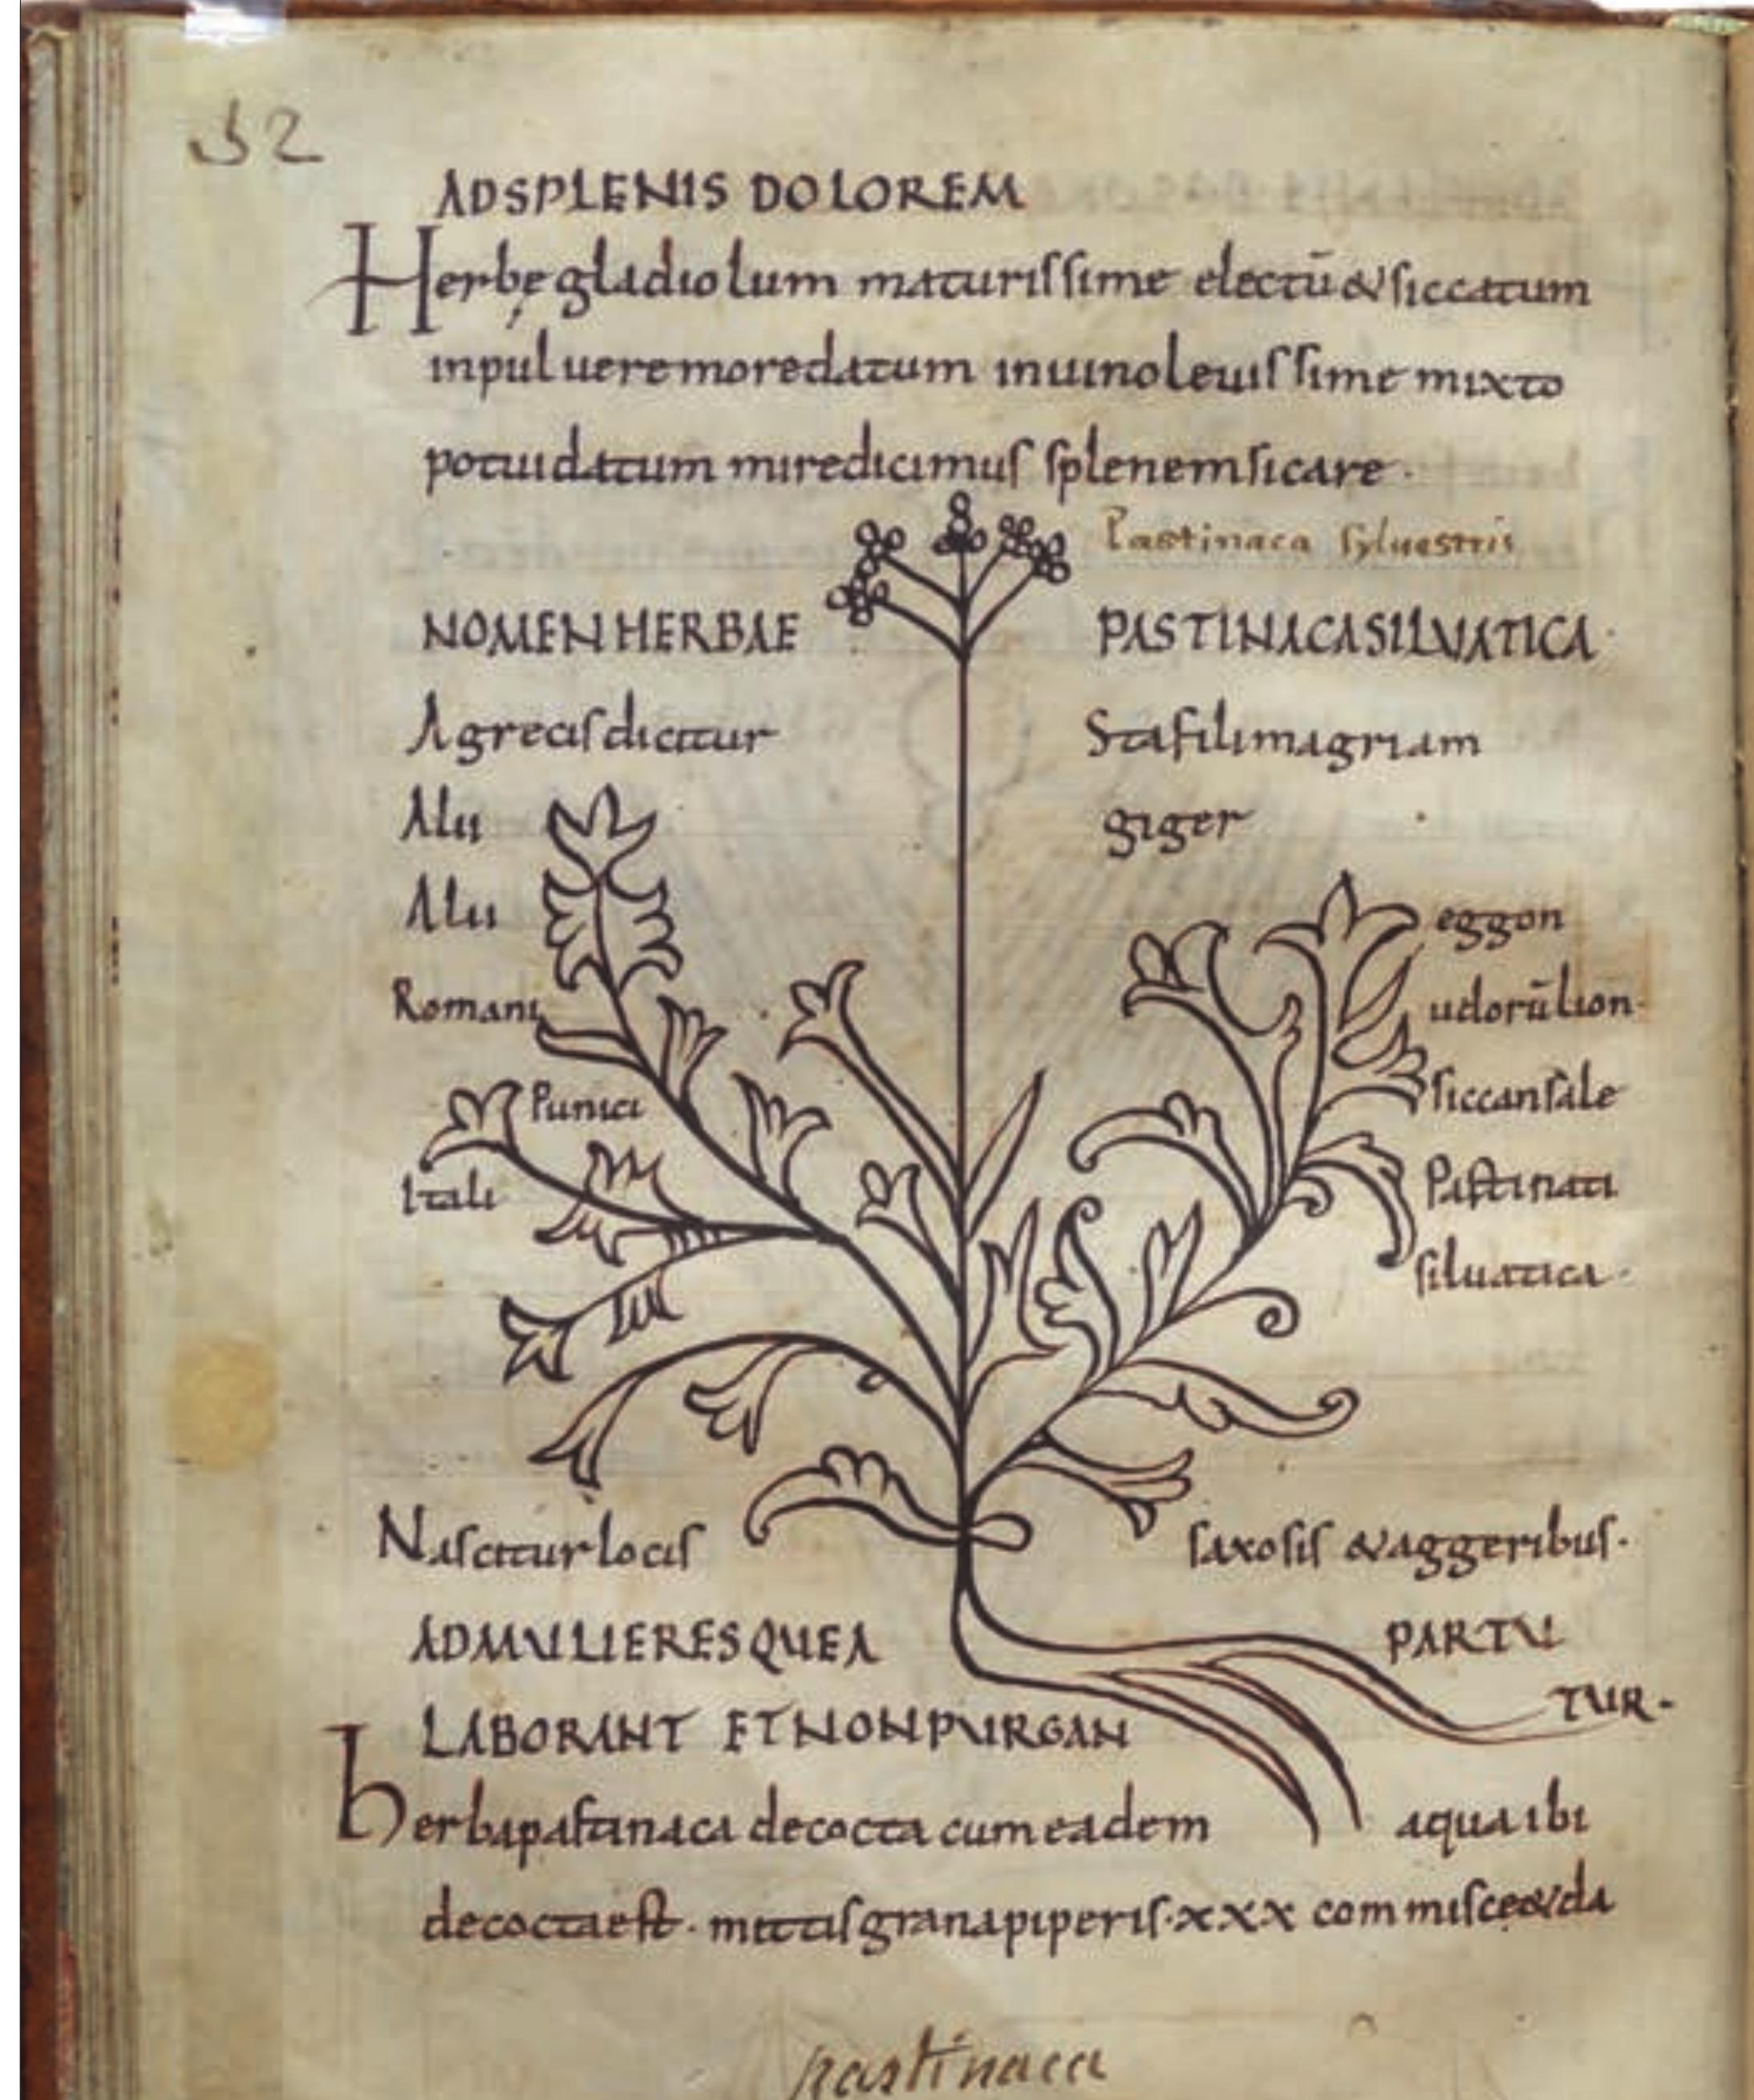 52
ADSPLENIS DOLOREM
Herbę gladiolum maturissime electū & siccatum
inpulueremoredatum inuinoleuissime mixto
potuidatum miredicimus splenemsicare ·
Pastinaca syluestris
NOMEN HERBAE PASTINACASILVATICA ·
Agrecisdicitur Stafilimagriam
Alii giger
Alii eggon
Romani udorūlion ·
Punici siccansale
Itali Pastinati
siluatica ·
Nasciturlocis saxosis &aggeribus ·
ADMULIERESQUEA PARTU
LABORANT ETNONPURGAN TUR ·
herbapastinaca decocta cumeadem aquaibi
decoctaest · mittisgranapiperis · xxx commisce&da
pastinaca